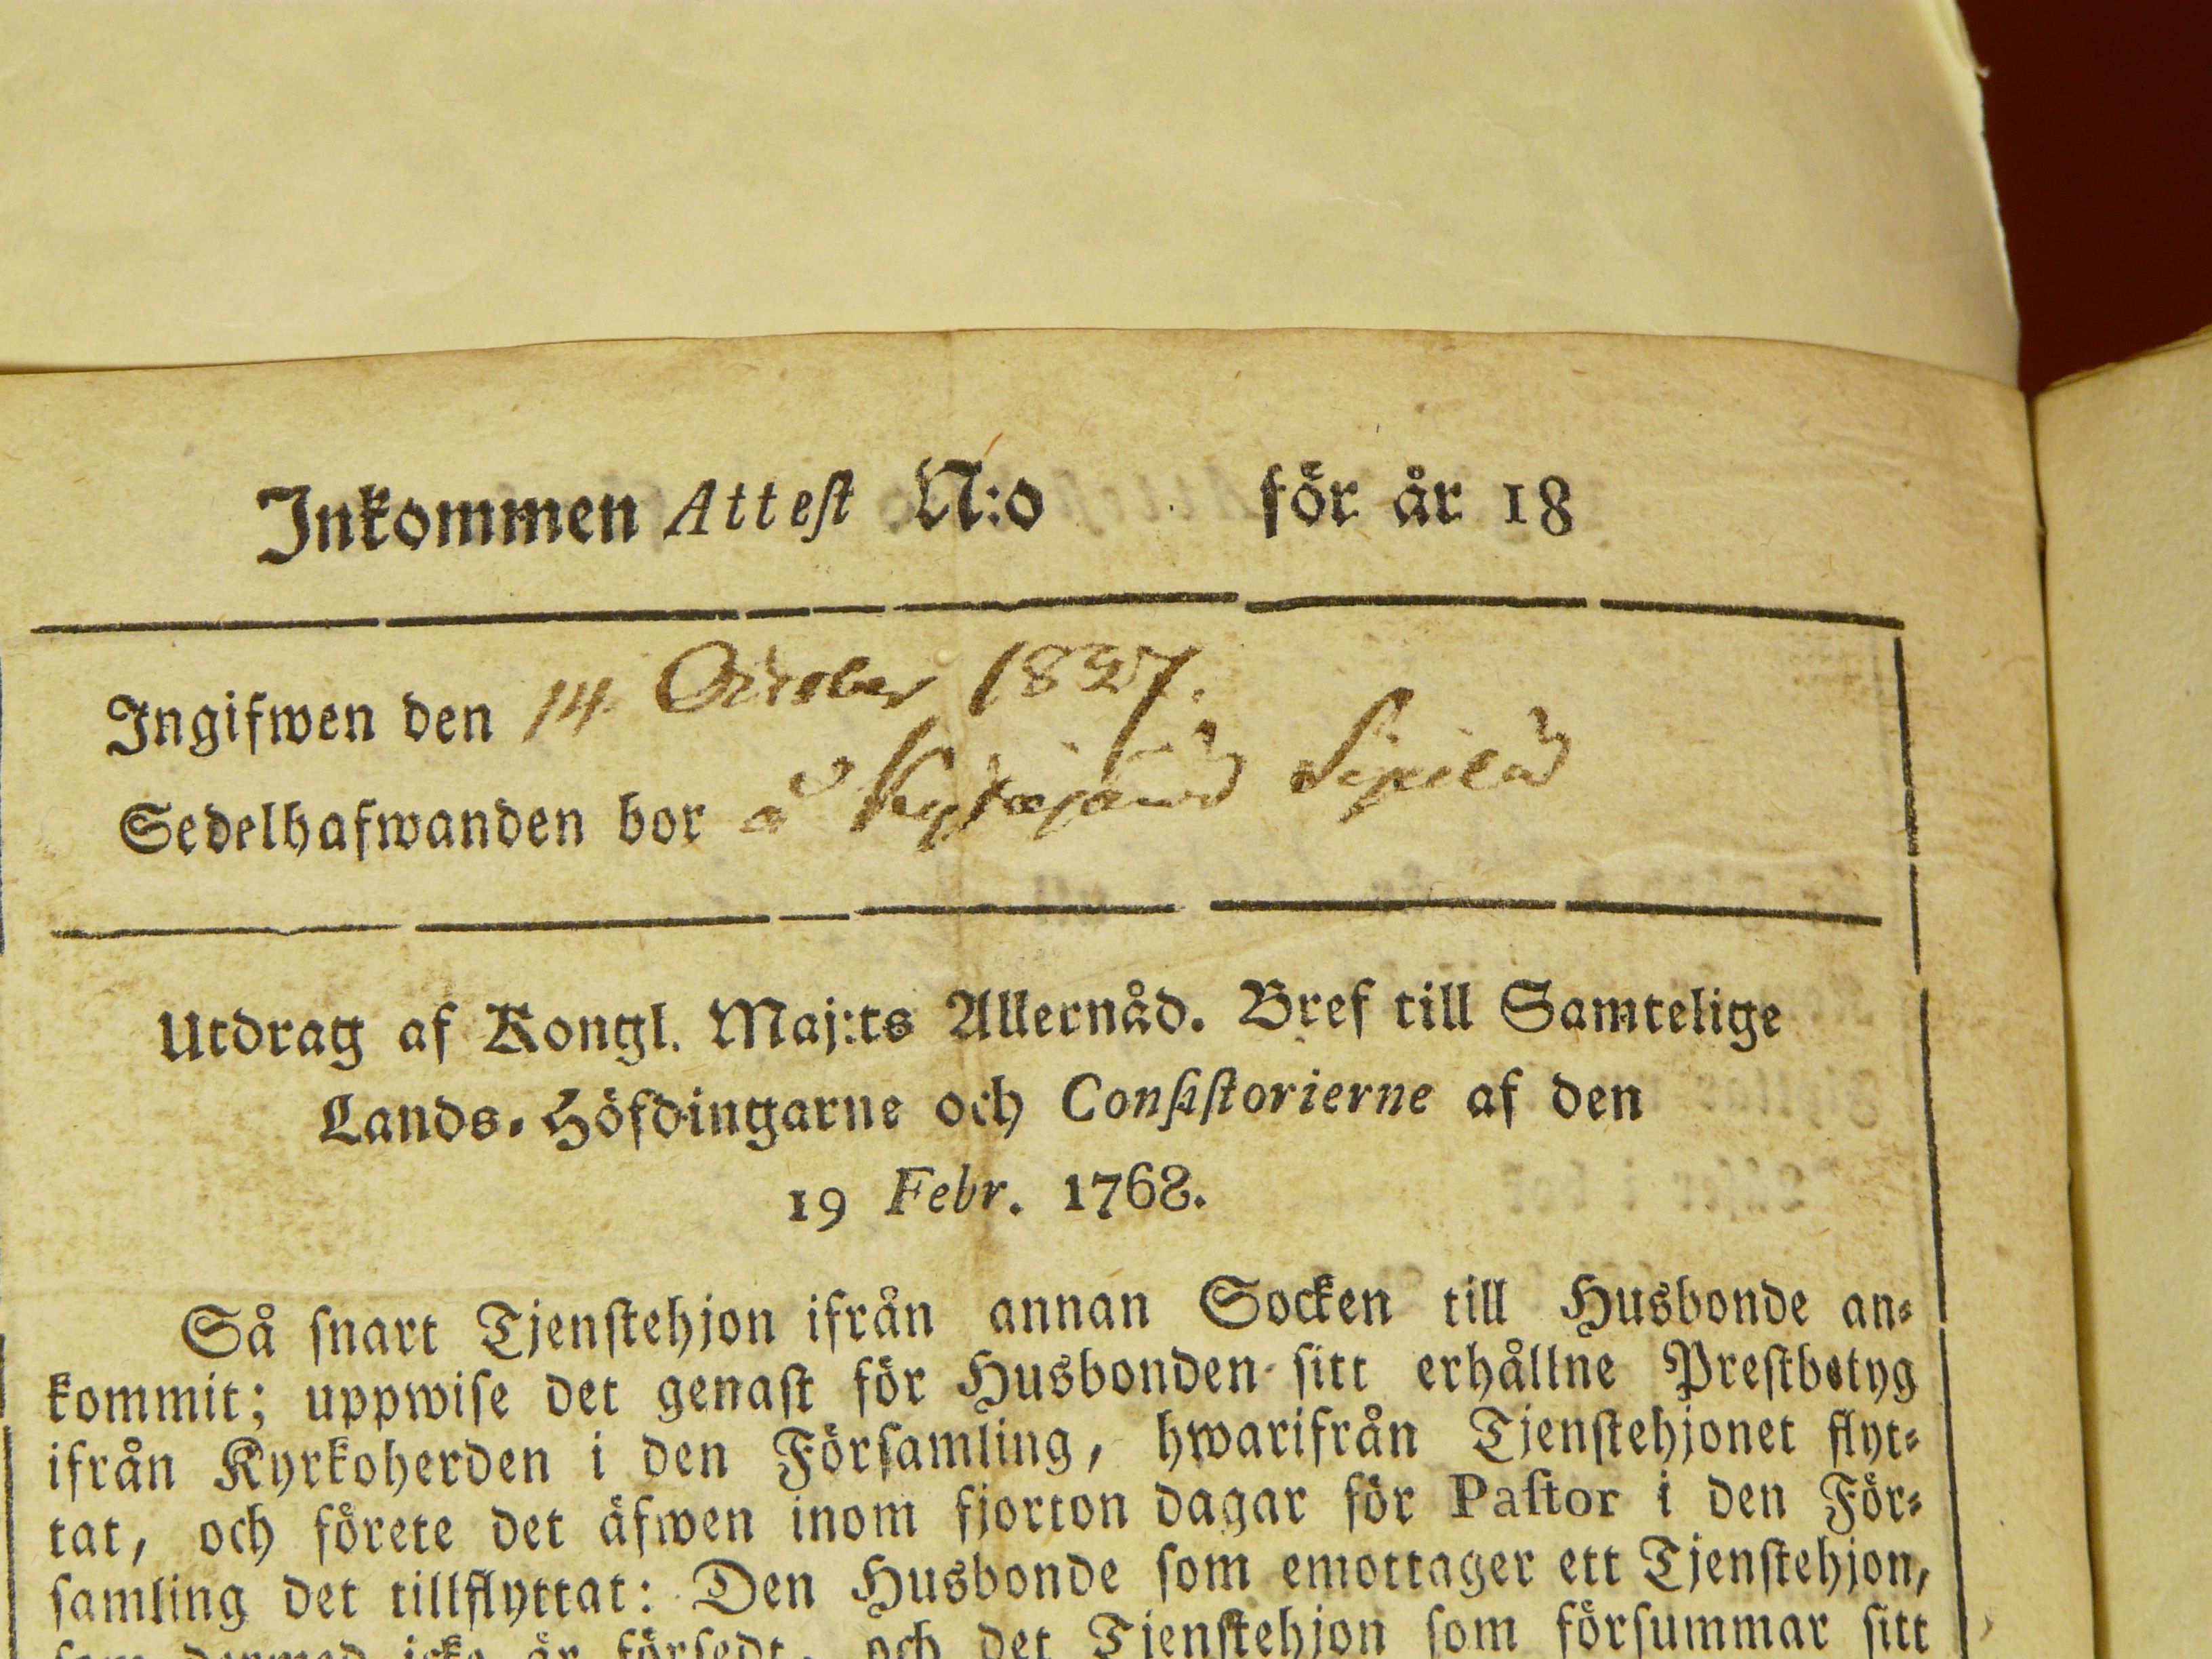 Inkommen Attest N:o för år 18
Ingifwen den 14. October 1827.
Sedelhafwanden bor å Kytäjärvi Sipilä
Utdrag af Kongl. Maj:ts Allernåd. Bref till Samtelige
Lands-Höfdingarne och Consistorierne af den
19 Febr. 1768.
Så snart Tjenstehjon ifrån annan Socken till Husbonde an-
kommit; uppwise det genast för Husbonden sitt erhållne Prestbetyg
ifrån Kyrkoherden i den Församling, hwarifrån Tjenstehjonet flyt-
tat, och förete det äfwen inom fjorton dagar för Pastor i den För-
samling det tillflyttat: Den Husbonde som emottager ett Tjenstehjon,
som dermed icke är försedt, och det Tjenstehjon som försummar sitt